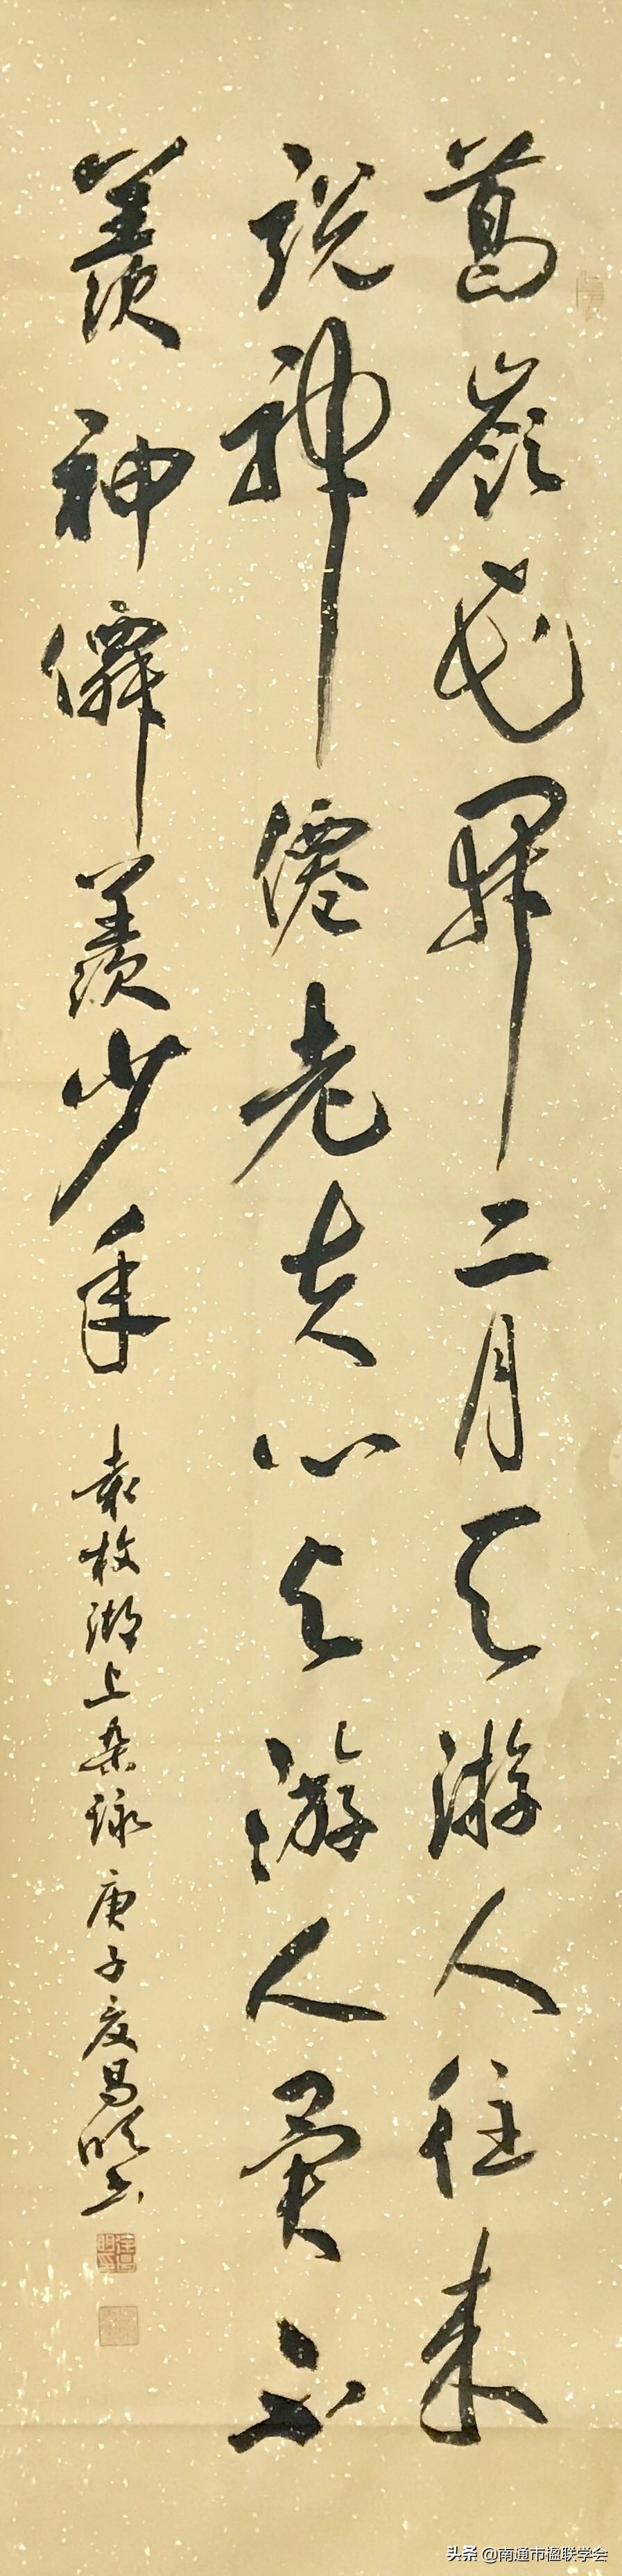 葛嶺花開二月天游人往来
説神僊老夫心与游人異不
羨神僊羨少年
袁枚湖上杂咏庚子夏昌明书
头条 @南通市楹联学会